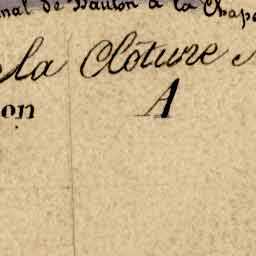 nal de Baulon à la Chape
la Clôture
on
A